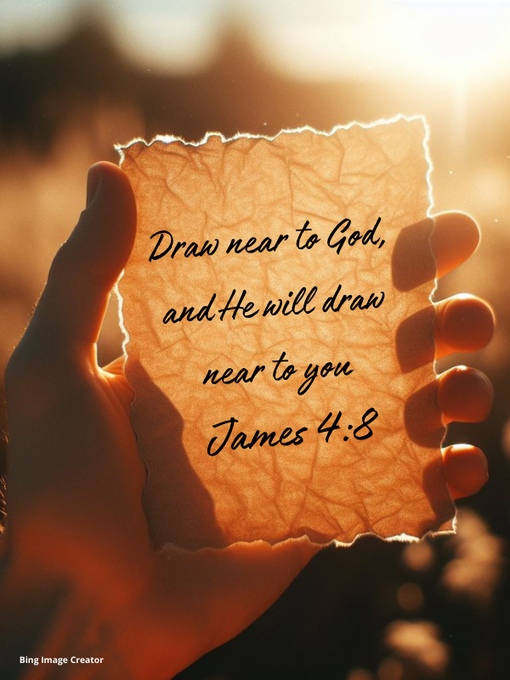 Draw near to God,
and He will draw
near to you
James 4:8
Bing Image Creator